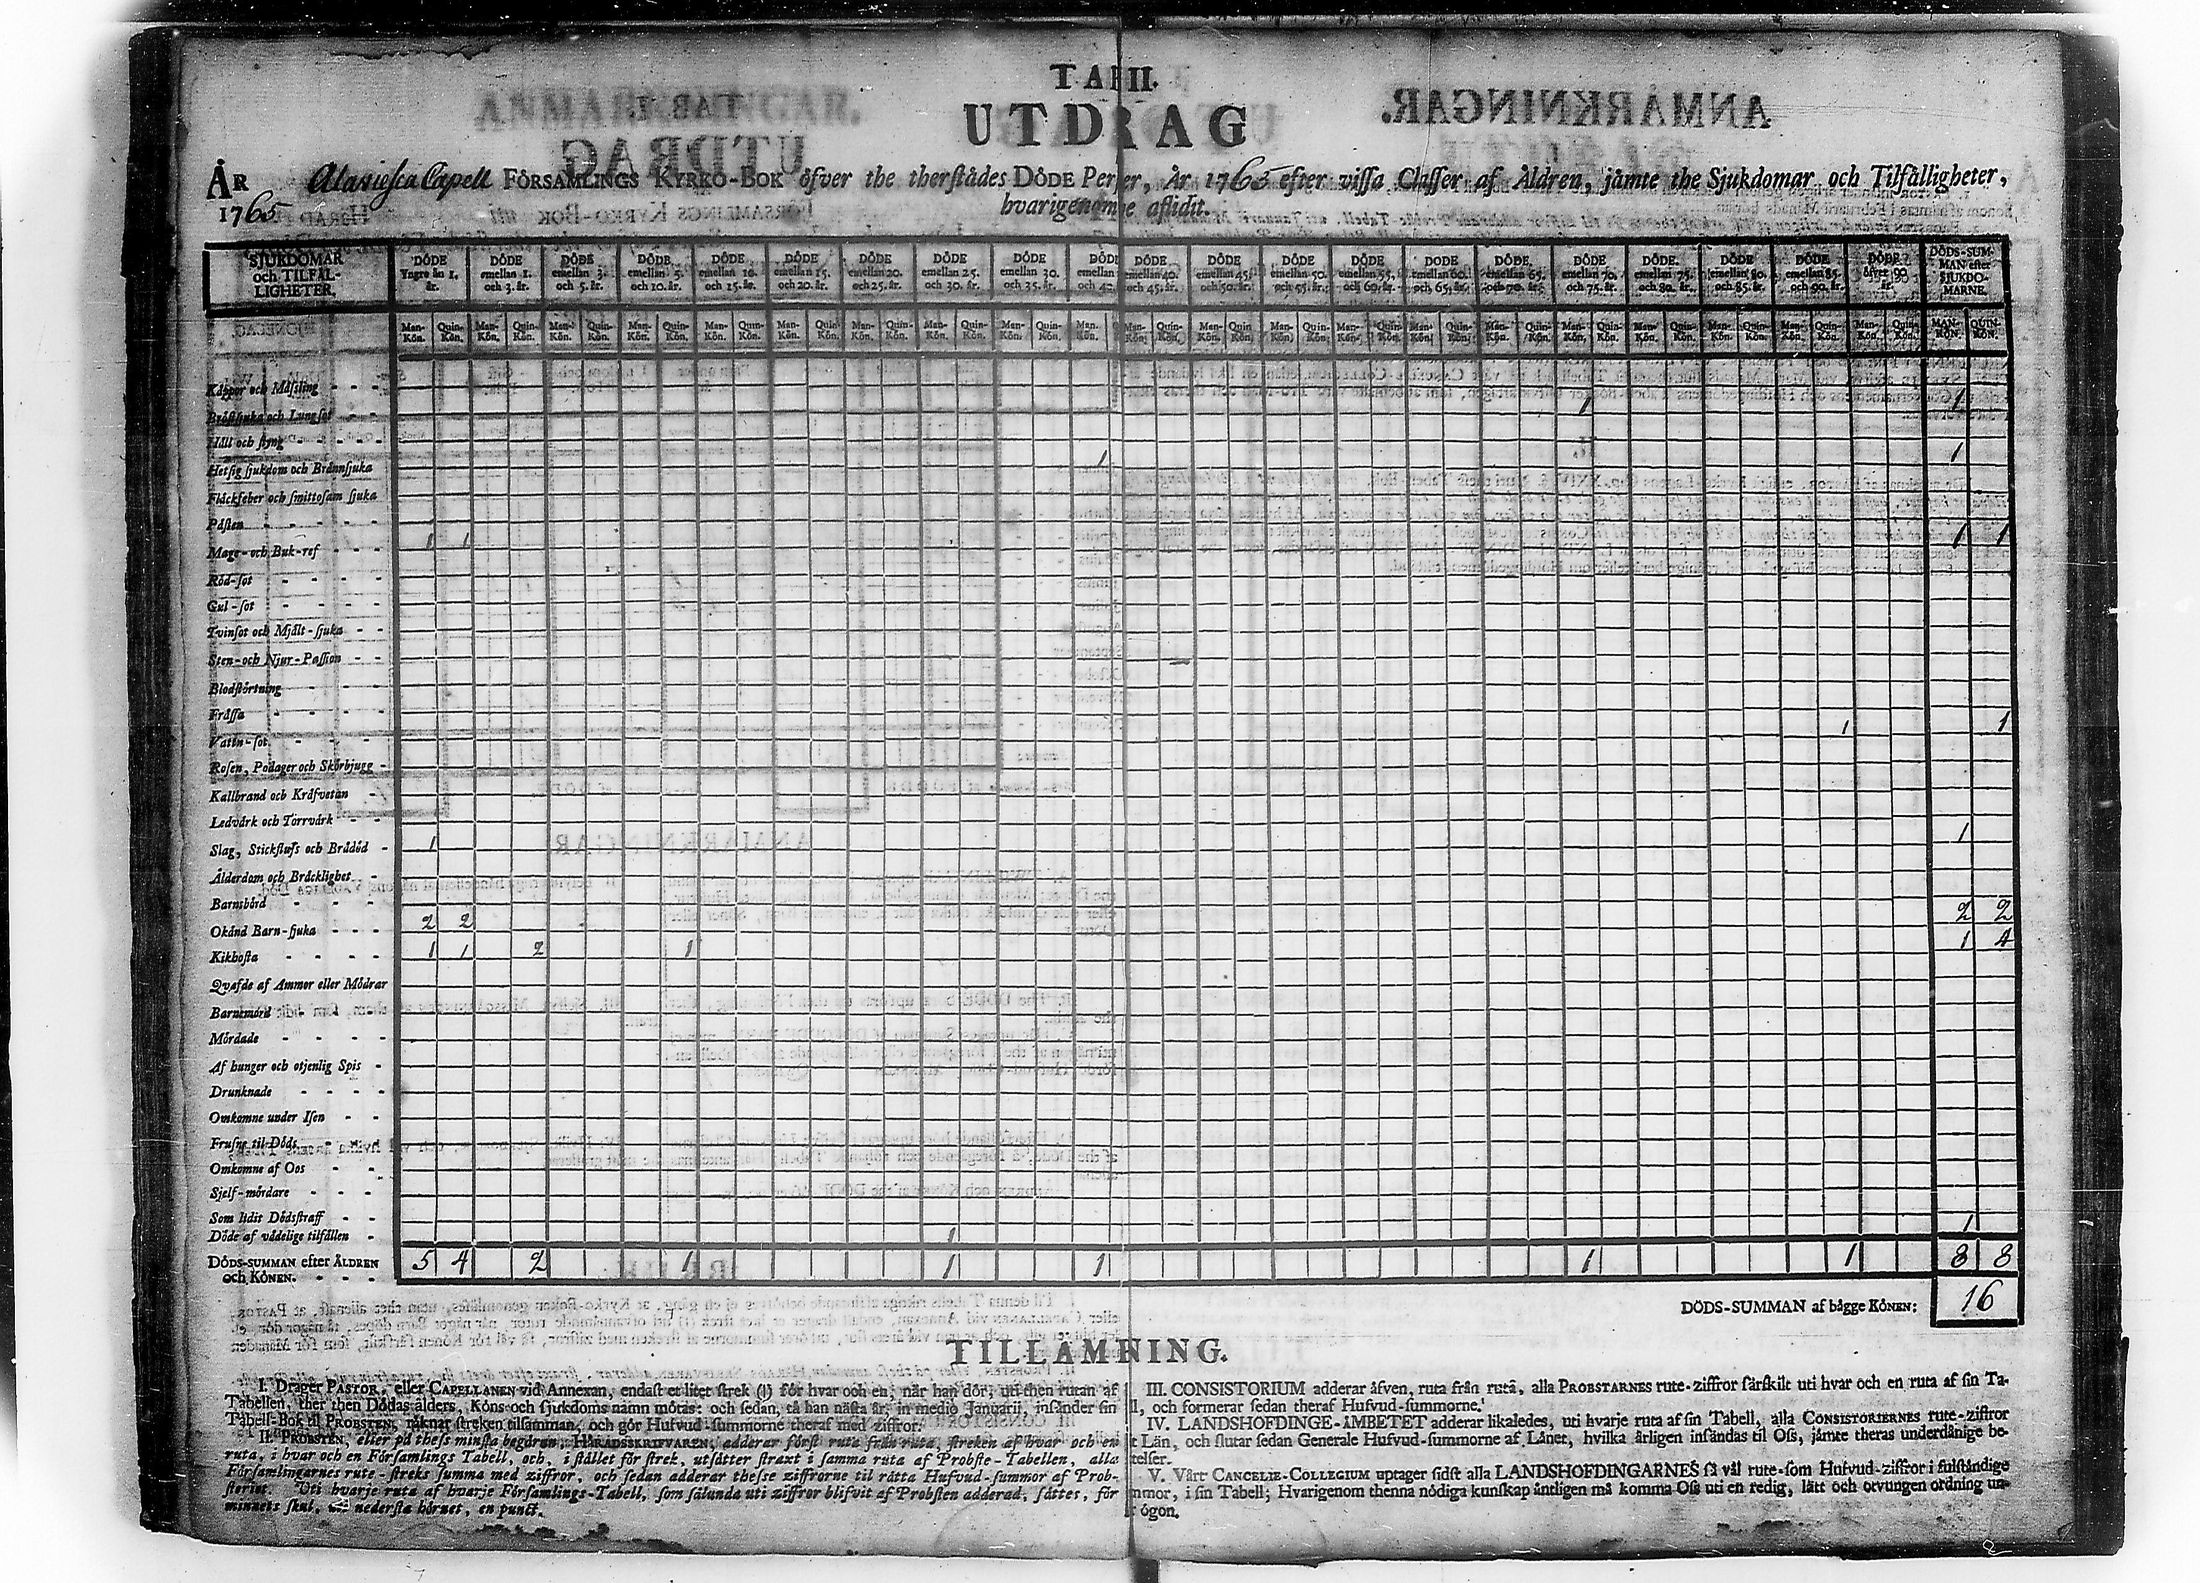 TAB II.
UTDRAG
ÅR 1765
Alavieska Capell FÖRSAMLINGS KYRKO-BOK öfver the therstådes DÖDE Per er, År 1765 efter vissa Classer af Åldren, jämte the Sjukdomar och Tilfälligheter,
hvarigenom e aflidit.
SJUKDOMAR och TILFÄL-LIGHETER.
DÖDE Yngre än 1. år.
DÖDE emellan 1. och 3. år.
DÖDE emellan 3. och 5. år.
DÖDE emellan 5. och 10. år.
DÖDE emellan 10. och 15. år.
DÖDE emellan 15. och 20. år.
DÖDE emellan 20. och 25. år.
DÖDE emellan 25. och 30. år.
DÖDE emellan 30. och 35. år.
DÖDE emellan och 40.
DÖDE emellan 40. och 45. år.
DÖDE emellan 45. och 50. år.
DÖDE emellan 50. och 55. år.
DÖDE emellan 55. och 60. år.
DÖDE emellan 60. och 65. år.
DÖDE emellan 65. och 70. år.
DÖDE emellan 70. och 75. år.
DÖDE emellan 75. och 80. år.
DÖDE emellan 80. och 85. år.
DÖDE emellan 85. och 90. år.
DÖDE öfver 90 år.
DÖDS-SUM-MAN efter SJUKDO-MARNE.
Man-Kön. Quin-Kön. Man-Kön. Quin-Kön. Man-Kön. Quin-Kön. Man-Kön. Quin-Kön. Man-Kön. Quin-Kön. Man-Kön. Quin-Kön. Man-Kön. Quin-Kön. Man-Kön. Quin-Kön. Man-Kön. Quin-Kön. Man-Kön. Man-Kön. Quin-Kön. Man-Kön. Quin-Kön. Man-Kön. Quin-Kön. Man-Kön. Quin-Kön. Man-Kön. Quin-Kön. Man-Kön. Quin-Kön. Man-Kön. Quin-Kön. Man-Kön. Quin-Kön. Man-Kön. Quin-Kön. Man-Kön. Quin-Kön. Man-Kön. Quin-Kön. MAN-KÖN. QUIN-KÖN.
Kåppor och Mässling
Bröstsjuka och Lungsot 1 1
Håll och styng
Hetsig sjukdom och Brännsjuka 1 1
Fläckfeber och smittosam sjuka
Pästen
Mage- och Buk-ref 1 1 1 1
Röd-sot
Gul-sot
Tvinsot och Mjält-sjuka
Sten- och Njur-Passion
Blodstörtning
Frässa
Vatn-sot 1 1
Rosen, Podager och Skörbjugg
Kallbrand och Kräfvetan
Ledvärk och Torrvärk
Slag, Stickfluss och Brådöd 1 1
Ålderdom och Bräcklighet
Barnsbörd
Okänd Barn-sjuka 2 2 2 2
Kikhosta 1 1 2 1 1 4
Qvafde af Ammor eller Mödrar
Barnemörd
Mördade
Af hunger och otjenlig Spis
Drunknade
Omkomne under Isen
Frusne til Döds
Omkomne af Oos
Sjelf-mördare
Som lidit Dödsstraff
Döde af vådelige tilfällen 1 1
DÖDS-SUMMAN efter ÅLDREN och KÖNEN. 5 4 2 1 1 1 1 1 8 8
DÖDS-SUMMAN af bägge KÖNEN: 16
TILLÄMNING.
I. Drager PASTOR, eller CAPELLANEN vid Annexan, endast et litet strek (|) för hvar och en, när han dör, uti then rutan af
Tabellen, ther then Dödas ålders, Köns och sjukdoms namn mötas: och sedan, tå han nästa år, in medio Januarii, insänder sin
Tabell-Bok til PROBSTEN, räknar streken tillsamman, och gör Hufvud-summorne theraf med ziffror.
II. PROBSTEN, eller på thess minsta begäran, HÄRADSSKRIFVAREN, adderar först ruta från ruta, streken af hvar och en
ruta, i hvar och en Församlings Tabell, och, i stället för strek, utsätter straxt i samma ruta af Probste-Tabellen, alla
Församlingarnes rute-streks summa med ziffror, och sedan adderar thesse ziffrorne til rätta Hufvud-summor af Prob-
steriet. Uti hvarje ruta af hvarje Församlings-Tabell, som sålunda uti ziffror blifvit af Probsten adderad, sättes, för
minnets skul, nedersta hörnet, en punct.
III. CONSISTORIUM adderar äfven, ruta från ruta, alla PROBSTARNES rute-ziffror särskilt uti hvar och en ruta af sin Ta-
ll, och formerar sedan theraf Hufvud-summorne.
IV. LANDSHÖFDINGE-ÄMBETET adderar likaledes, uti hvarje ruta af sin Tabell, alla CONSISTORIERNES rute-ziffror
t Län, och slutar sedan Generale Hufvud-summorne af Länet, hvilka årligen insändas til Oss, jämte theras underdånige be-
telser.
V. Vårt CANCELIE-COLLEGIUM uptager sidst alla LANDSHÖFDINGARNES så väl rute-som Hufvud-ziffror i fulständige
mmor, i sin Tabell; Hvarigenom thenna nödiga kunskap äntligen må komma Oss uti en redig, lätt och otvungen ordning un-
ögon.